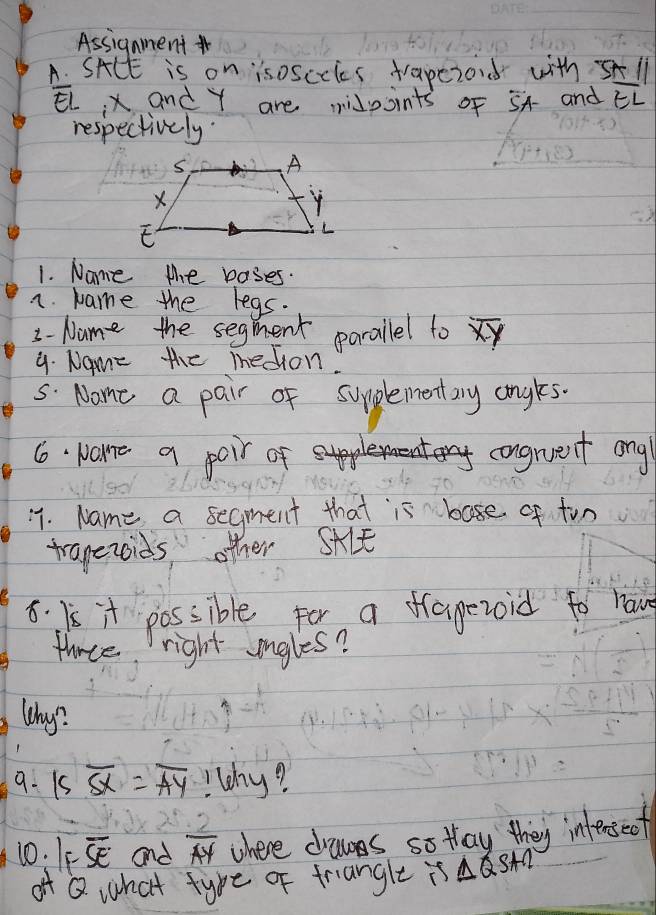 Assignment #
A. SALE is on isosceles trapezoid with SA ||
EL, X and Y are midpoints of SA and EL
respectively.
S A
X Y
E L
1. Name the bases.
2. Name the legs.
3- Name the segment parallel to XY
4. Name the median.
5. Name a pair of supplementary angles.
6. Name a pair of supplementary congruent angl
7. Name a segment that is base of two
trapezoids, other SALE
8. Is it possible for a trapezoid to have
three right angles?
Why?
9. Is SX = AY! Why?
10. If SE and AY where drawns so thay they intersect
at Q, what type of triangle is △QSA?